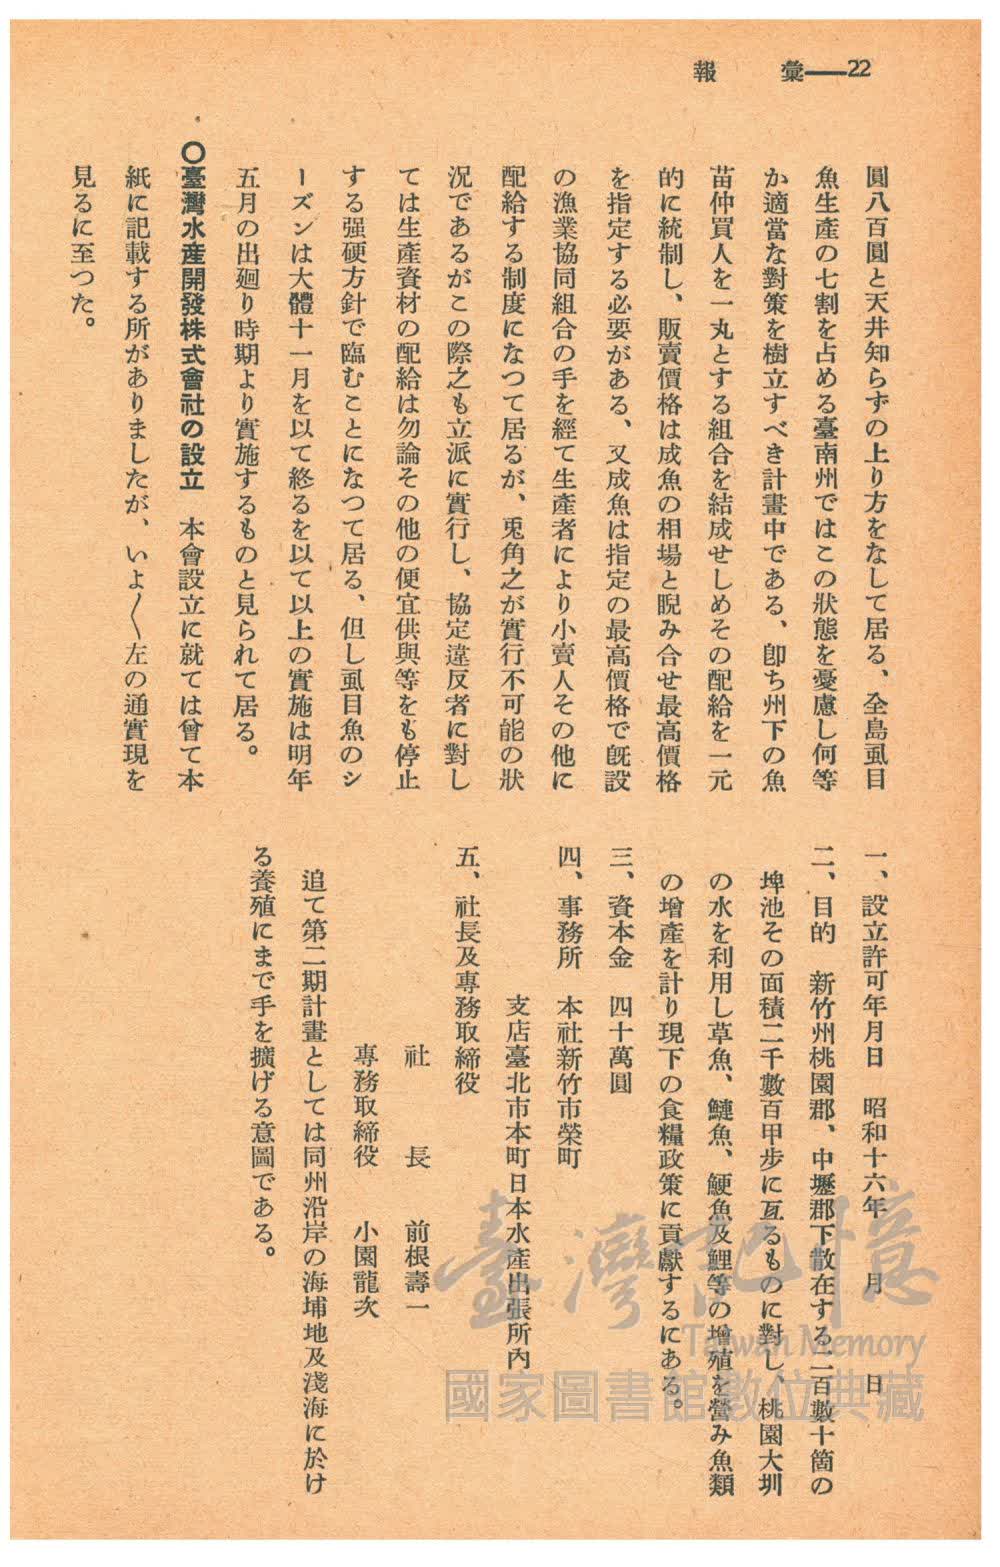 22——彙報
圓八百圓と天井知らずの上り方をなして居る、全島虱目
魚生產の七割を占める臺南州ではこの狀態を憂慮し何等
か適當な對策を樹立すべき計畫中である、卽ち州下の魚
苗仲買人を一丸とする組合を結成せしめその配給を一元
的に統制し、販賣價格は成魚の相場と睨み合せ最高價格
を指定する必要がある、又成魚は指定の最高價格で旣設
の漁業協同組合の手を經て生產者により小賣人その他に
配給する制度になつて居るが、兎角之が實行不可能の狀
況であるがこの際之も立派に實行し、協定違反者に對し
ては生產資材の配給は勿論その他の便宜供與等をも停止
する强硬方針で臨むことになつて居る、但し虱目魚のシ
ーズンは大體十一月を以て終るを以て以上の實施は明年
五月の出廻り時期より實施するものと見られて居る。
〇臺灣水產開發株式會社の設立　本會設立に就ては曾て本
紙に記載する所がありましたが、いよ〱左の通實現を
見るに至つた。
一、設立許可年月日　昭和十六年　月　日
二、目的　新竹州桃園郡、中壢郡下散在する二百數十箇の
埤池その面積二千數百甲步に亙るものに對し、桃園大圳
の水を利用し草魚、鰱魚、鯁魚及鯉等の增殖を營み魚類
の增產を計り現下の食糧政策に貢獻するにある。
三、資本金　四十萬圓
四、事務所　本社新竹市榮町
支店臺北市本町日本水產出張所內
五、社長及專務取締役
社長　前根壽一
專務取締役　小園龍次
追て第二期計畫としては同州沿岸の海埔地及淺海に於け
る養殖にまで手を擴げる意圖である。
臺灣記憶
Taiwan Memory
國家圖書館數位典藏